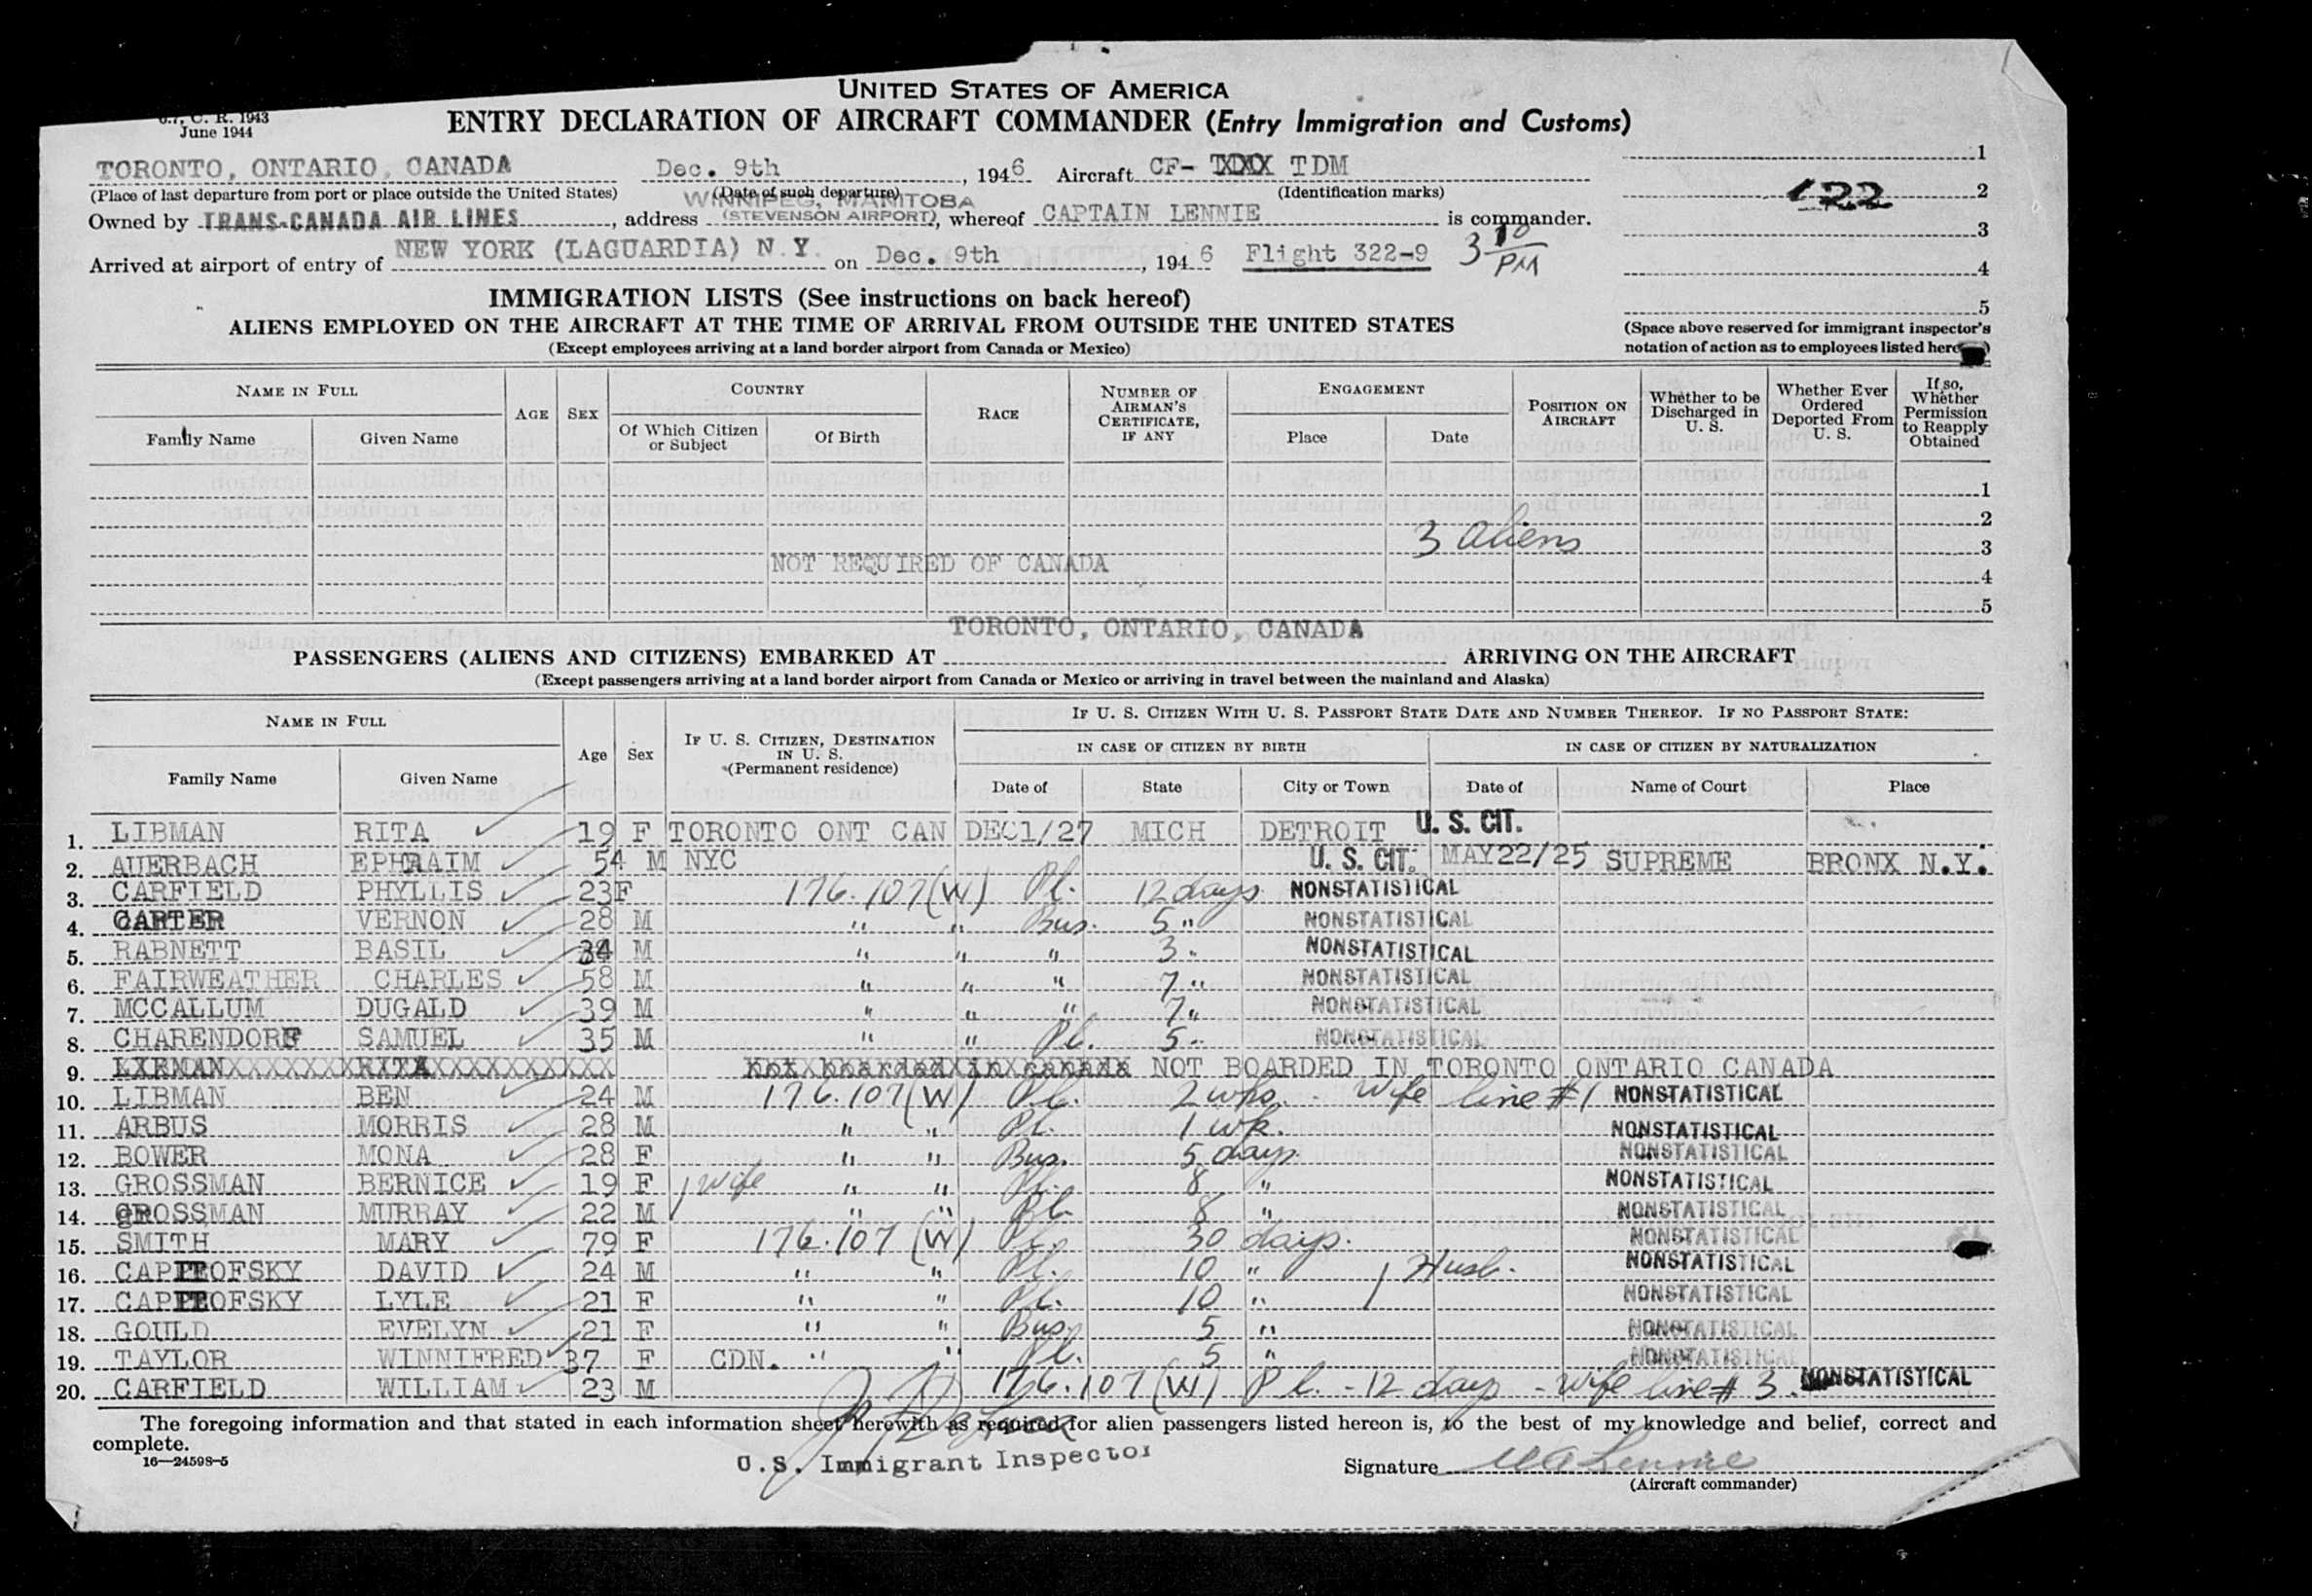 UNITED STATES OF AMERICA
C. R. 1943
June 1944
ENTRY DECLARATION OF AIRCRAFT COMMANDER (Entry Immigration and Customs)
TORONTO, ONTARIO, CANADA Dec. 9th, 1946 Aircraft CF- TDM
(Place of last departure from port or place outside the United States) (Date of such departure) (Identification marks)
WINNIPEG, MANITOBA
Owned by TRANS-CANADA AIR LINES, address (STEVENSON AIRPORT), whereof CAPTAIN LENNIE is commander.
Arrived at airport of entry of NEW YORK (LAGUARDIA) N.Y. on Dec. 9th, 1946 Flight 322-9 3 10 PM
1
122 2
3
4
5
(Space above reserved for immigrant inspector's
notation of action as to employees listed
IMMIGRATION LISTS (See instructions on back hereof)
ALIENS EMPLOYED ON THE AIRCRAFT AT THE TIME OF ARRIVAL FROM OUTSIDE THE UNITED STATES
(Except employees arriving at a land border airport from Canada or Mexico)
NAME IN FULL AGE SEX COUNTRY RACE NUMBER OF AIRMAN'S CERTIFICATE, IF ANY ENGAGEMENT POSITION ON AIRCRAFT Whether to be Discharged in U. S. Whether Ever Ordered Deported From U. S. If so, Whether Permission to Reapply Obtained
Family Name Given Name Of Which Citizen or Subject Of Birth Place Date
1
2
3 aliens 3
NOT REQUIRED OF CANADA 4
5
TORONTO, ONTARIO, CANADA
PASSENGERS (ALIENS AND CITIZENS) EMBARKED AT ARRIVING ON THE AIRCRAFT
(Except passengers arriving at a land border airport from Canada or Mexico or arriving in travel between the mainland and Alaska)
NAME IN FULL Age Sex IF U. S. CITIZEN, DESTINATION IN U. S. (Permanent residence) IF U. S. CITIZEN WITH U. S. PASSPORT STATE DATE AND NUMBER THEREOF. IF NO PASSPORT STATE:
IN CASE OF CITIZEN BY BIRTH IN CASE OF CITIZEN BY NATURALIZATION
Family Name Given Name Date of State City or Town Date of Name of Court Place
1. LIBMAN RITA 19 F TORONTO ONT CAN DEC1/27 MICH DETROIT U. S. CIT.
2. AUERBACH EPHRAIM 54 M NYC U. S. CIT. MAY22/25 SUPREME BRONX N.Y.
3. CARFIELD PHYLLIS 23 F 176.107(W) Pl. 12 days NONSTATISTICAL
4. CARTER VERNON 28 M " " Bus. 5 " NONSTATISTICAL
5. RABNETT BASIL 34 M " " " 3 " NONSTATISTICAL
6. FAIRWEATHER CHARLES 58 M " " " 7 " NONSTATISTICAL
7. MCCALLUM DUGALD 39 M " " " 7 " NONSTATISTICAL
8. CHARENDORF SAMUEL 35 M " " Pl. 5 " NONSTATISTICAL
9. LIBMANXXXXXXXRITAXXXXXXXXXX NOT BOARDED IN TORONTO ONTARIO CANADA
10. LIBMAN BEN 24 M 176.107(W) Pl. 2 wks. - Wife line #1 NONSTATISTICAL
11. ARBUS MORRIS 28 M " " Pl. 1 wk. NONSTATISTICAL
12. BOWER MONA 28 F " " Bus. 5 days NONSTATISTICAL
13. GROSSMAN BERNICE 19 F Wife " " Pl. 8 " NONSTATISTICAL
14. GROSSMAN MURRAY 22 M " " Pl. 8 " NONSTATISTICAL
15. SMITH MARY 79 F 176.107 (W) Pl. 30 days. NONSTATISTICAL
16. DAVID 24 M " " Pl. 10 " Husb. NONSTATISTICAL
17. LYLE 21 F " " Pl. 10 " NONSTATISTICAL
18. GOULD EVELYN 21 F " " Bus. 5 " NONSTATISTICAL
19. TAYLOR WINNIFRED 37 F CDN. " " Pl. 5 " NONSTATISTICAL
20. CARFIELD WILLIAM 23 M 176.107(W) Pl. - 12 days - wife line # 3. NONSTATISTICAL
The foregoing information and that stated in each information sheet herewith as required for alien passengers listed hereon is, to the best of my knowledge and belief, correct and
complete.
16—24598-5
U.S. Immigrant Inspector
Signature Lennie
(Aircraft commander)